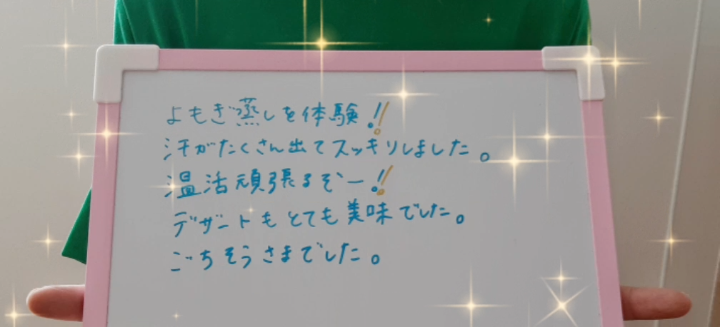 よもぎ蒸しを体験!!
汗がたくさん出てスッキリしました。
温活頑張るぞー!!
デザートもとても美味でした。
ごちそうさまでした。